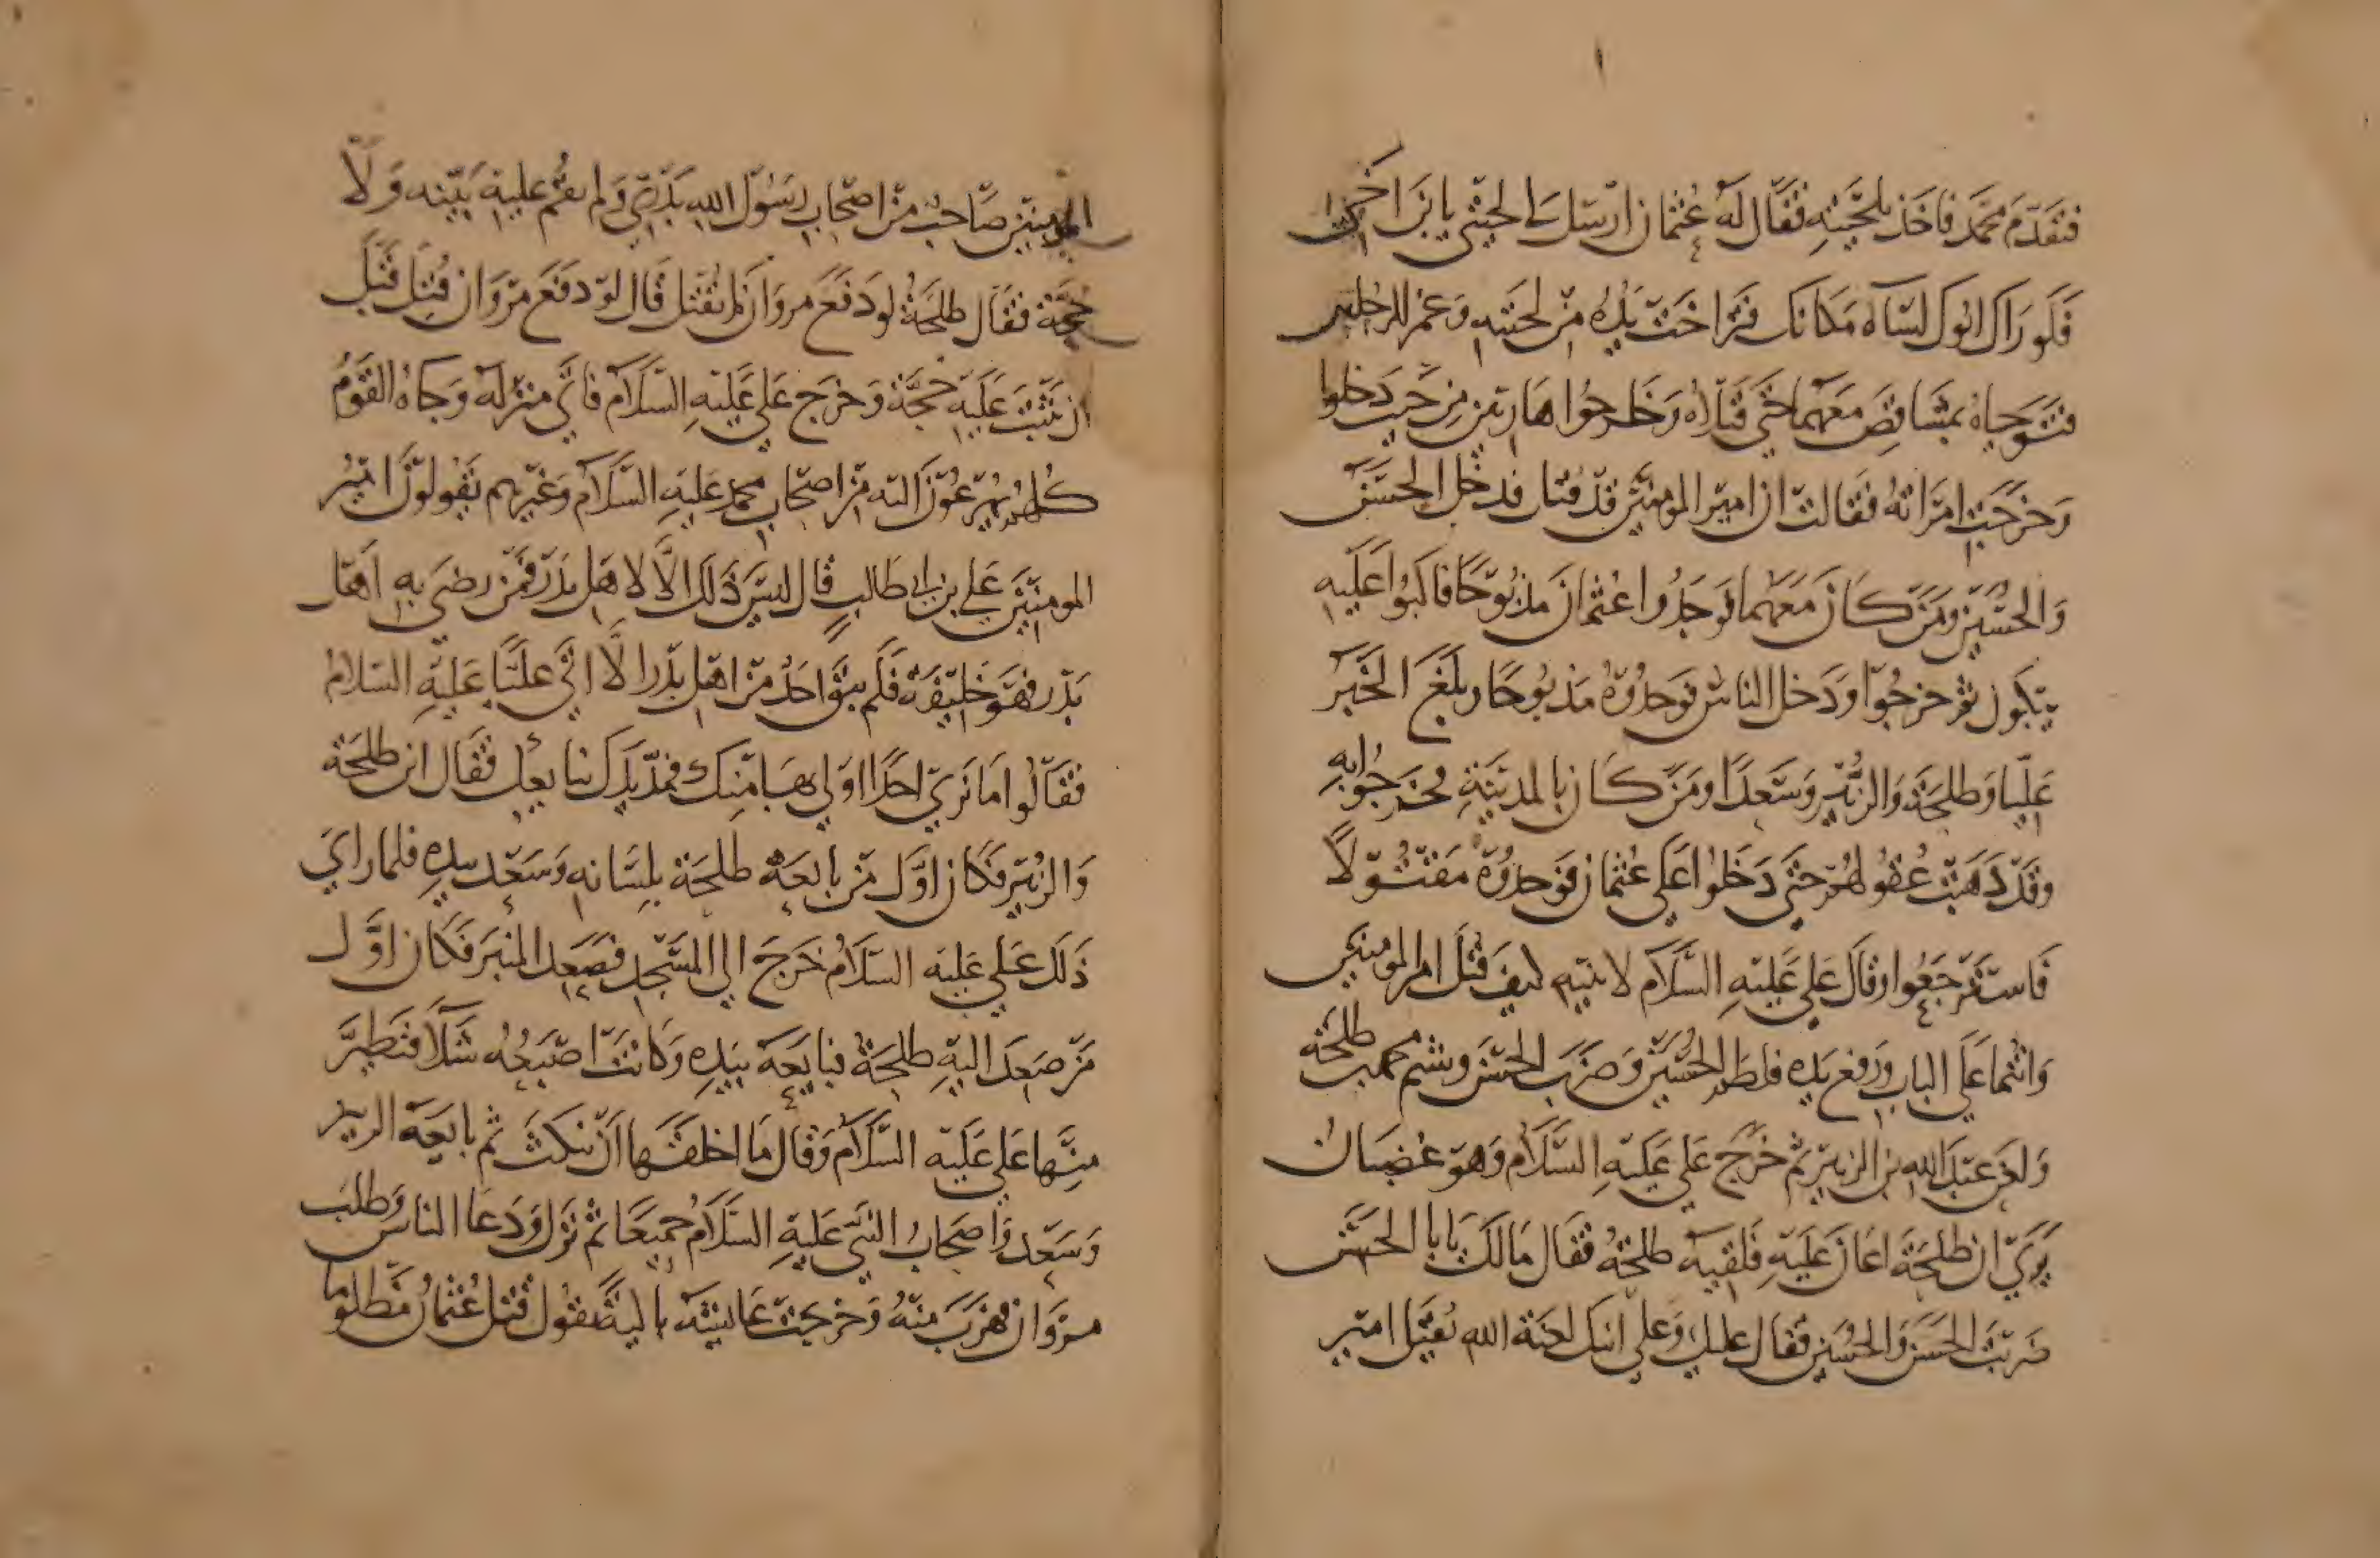 فتقدم محمد فاخذ بلحيته فقال له عثمان ارسل لي لحيتي يا بن اخي
فلو راك ابوك لساه مكانك فتراخت يده من لحيته وغمز الرجلين
فتوجياه بمشاقص معهما حتى قتلاه وخرجوا هاربين من حيث دخلوا
وخرجت امراته فقالت ان امير المومنين قد قتل فدخل الحسن
والحسين ومن كان معهما فوجدوا عثمان مذبوحا فاكبوا عليه
يبكون ثم خرجوا ودخل الناس فوجدوه مذبوحا وبلغ الخبر
عليا وطلحة والزبير وسعدا ومن كان بالمدينة فخرجوا
وقد ذهبت عقولهم حتى دخلوا على عثمان فوجدوه مقتولا
فاسترجعوا وقال علي عليه السلام لابنيه كيف قتل امير المومنين
وانتما على الباب ورفع يده فلطم الحسين وضرب الحسن وشتم محمد بن طلحة
ولعن عبد الله بن الزبير ثم خرج علي عليه السلام وهو غضبان
يري ان طلحة اعان عليه فلقيه طلحة فقال مالك يا با الحسن
ضربت الحسن والحسين فقال عليك وعلى ابنيك لعنة الله يقتل امير
المومنين صاحب من اصحاب رسول الله بدري ولم تقم عليه بينه ولا
حجة فقال طلحة لو دفع مروان لم يقتل قال لو دفع مروان قتل قبل
ان تثبت عليه حجة وخرج علي عليه السلام فاتي منزله وجاه القوم
كلهم يهرعون اليه من اصحاب محمد عليه السلام وغيرهم يقولون امير
المومنين علي بن ابي طالب قال ليس ذلك الا لاهل بدر فمن رضي به اهل
بدر فهو خليفة فلم يبق احد من اهل بدر الا اتي عليا عليه السلام
فقالوا ما نري احدا اولي بها منك فمد يدك نبايعك فقال اين طلحة
والزبير فكان اول من بايعه طلحة بلسانه وسعد بيده فلما راي
ذلك علي عليه السلام خرج الي المسجد فصعد المنبر فكان اول
من صعد اليه طلحة فبايعه بيده وكانت اصبعه شلا فتطير
منها علي عليه السلام وقال ما اخلقها ان تنكث ثم بايعه الزبير
وسعد واصحاب النبي عليه السلام جميعا ثم نزل ودعا الناس وطلب
مروان فهرب منه وخرجت عايشة باكية تقول قتل عثمان مظلوما